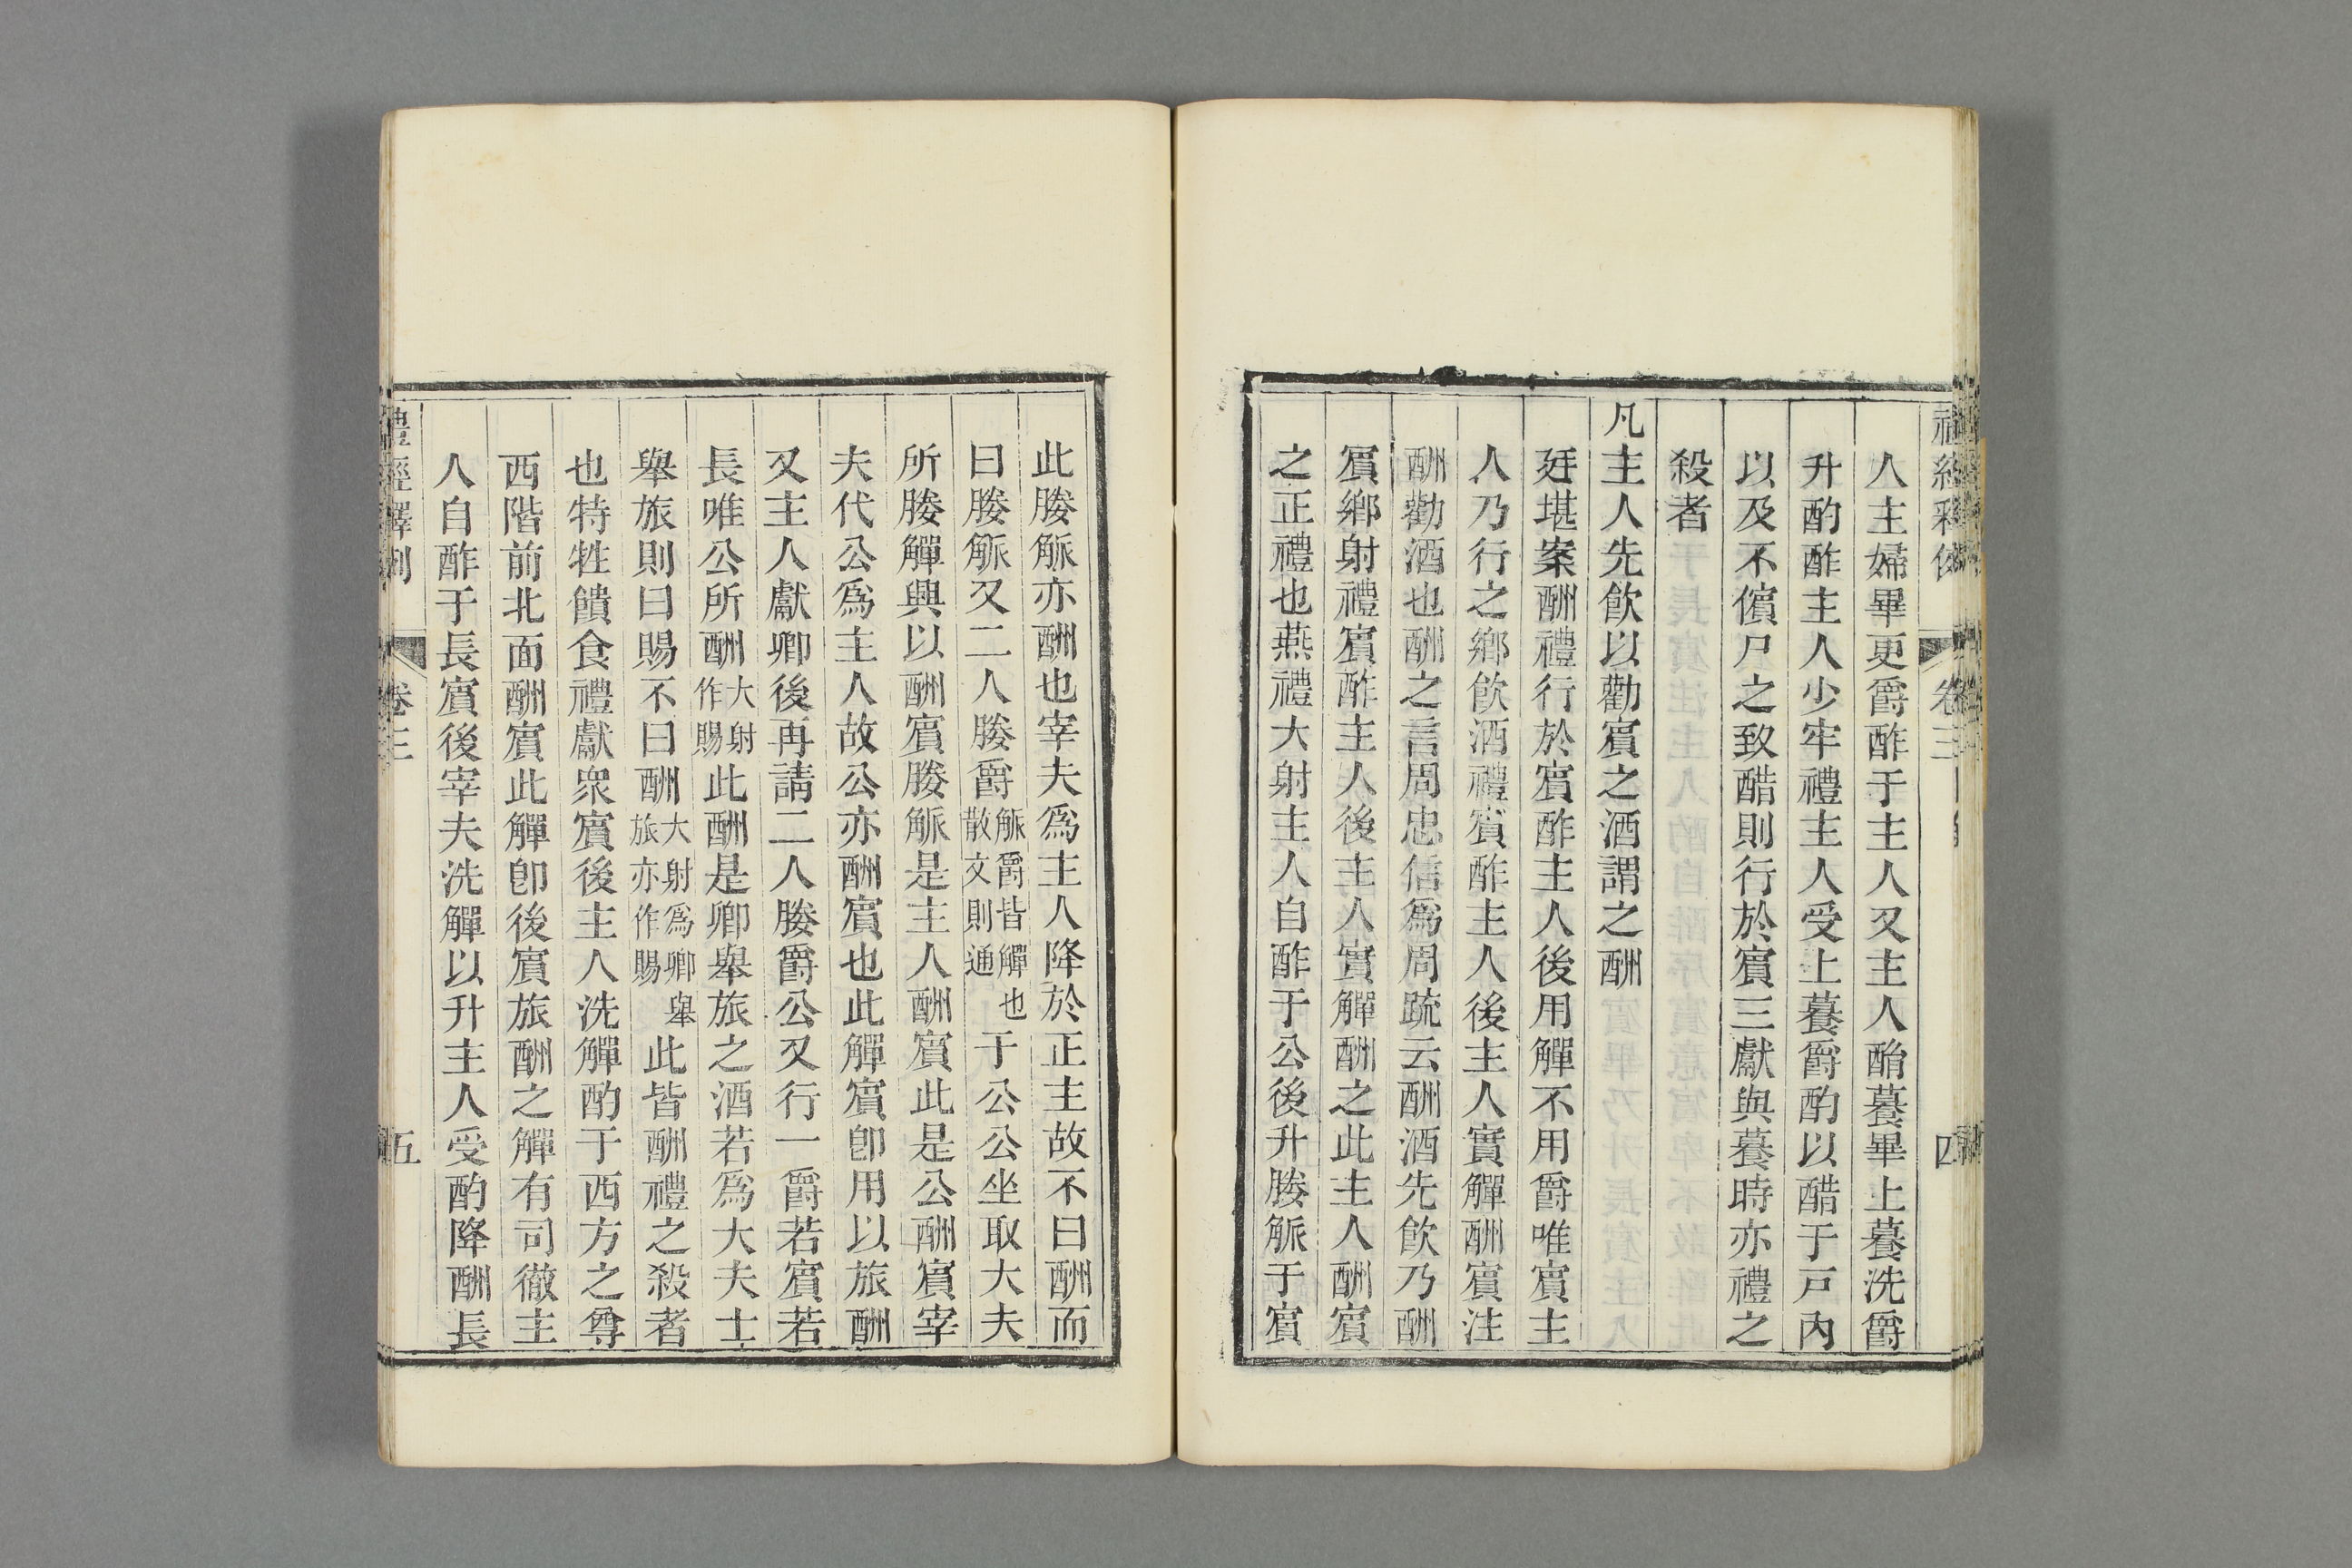 人主婦畢更爵酢于主人又主人酳䉵畢上䉵洗爵
升酌酢主人少牢禮主人受上䉵爵酌以醋于戸內
以及不儐尸之致酷則行於賔三獻與䉵時亦禮之
殺者
凡主人先飲以勸賔之酒謂之酬
廷堪案酬禮行於賔酢主人後用觶不用爵唯賔主
人乃行之鄉飲酒禮賔酢主人後主人實觶酬賔注
酬勸酒也酬之言周忠信爲周疏云酬酒先飲乃酬
賔鄉射禮賔酢主人後主人實觶酬之此主人酬賔
之正禮也燕禮大射主人自酢于公後升媵觚于賔
卷三
四
此媵觚亦酬也宰夫爲主人降於正主故不曰酬而
曰媵觚又二人媵爵觚爵皆觶也散文則通于公公坐取大夫
所媵觶興以酬賔媵觚是主人酬賔此是公酬賔宰
夫代公爲主人故公亦酬賔也此觶賔卽用以旅酬
又主人獻卿後再請二人媵爵公又行一爵若賔若
長唯公所酬大射作賜此酬是卿舉旅之酒若爲大夫士
舉旅則曰賜不曰酬大射爲卿舉旅亦作賜此皆酬禮之殺者
也特牲饋食禮獻眾賔後主人洗觶酌于西方之尊
西階前北面酬賔此觶卽後賔旅酬之觶有司徹主
人自酢于長賔後宰夫洗觶以升主人受酌降酬長
禮經釋例
卷三
五